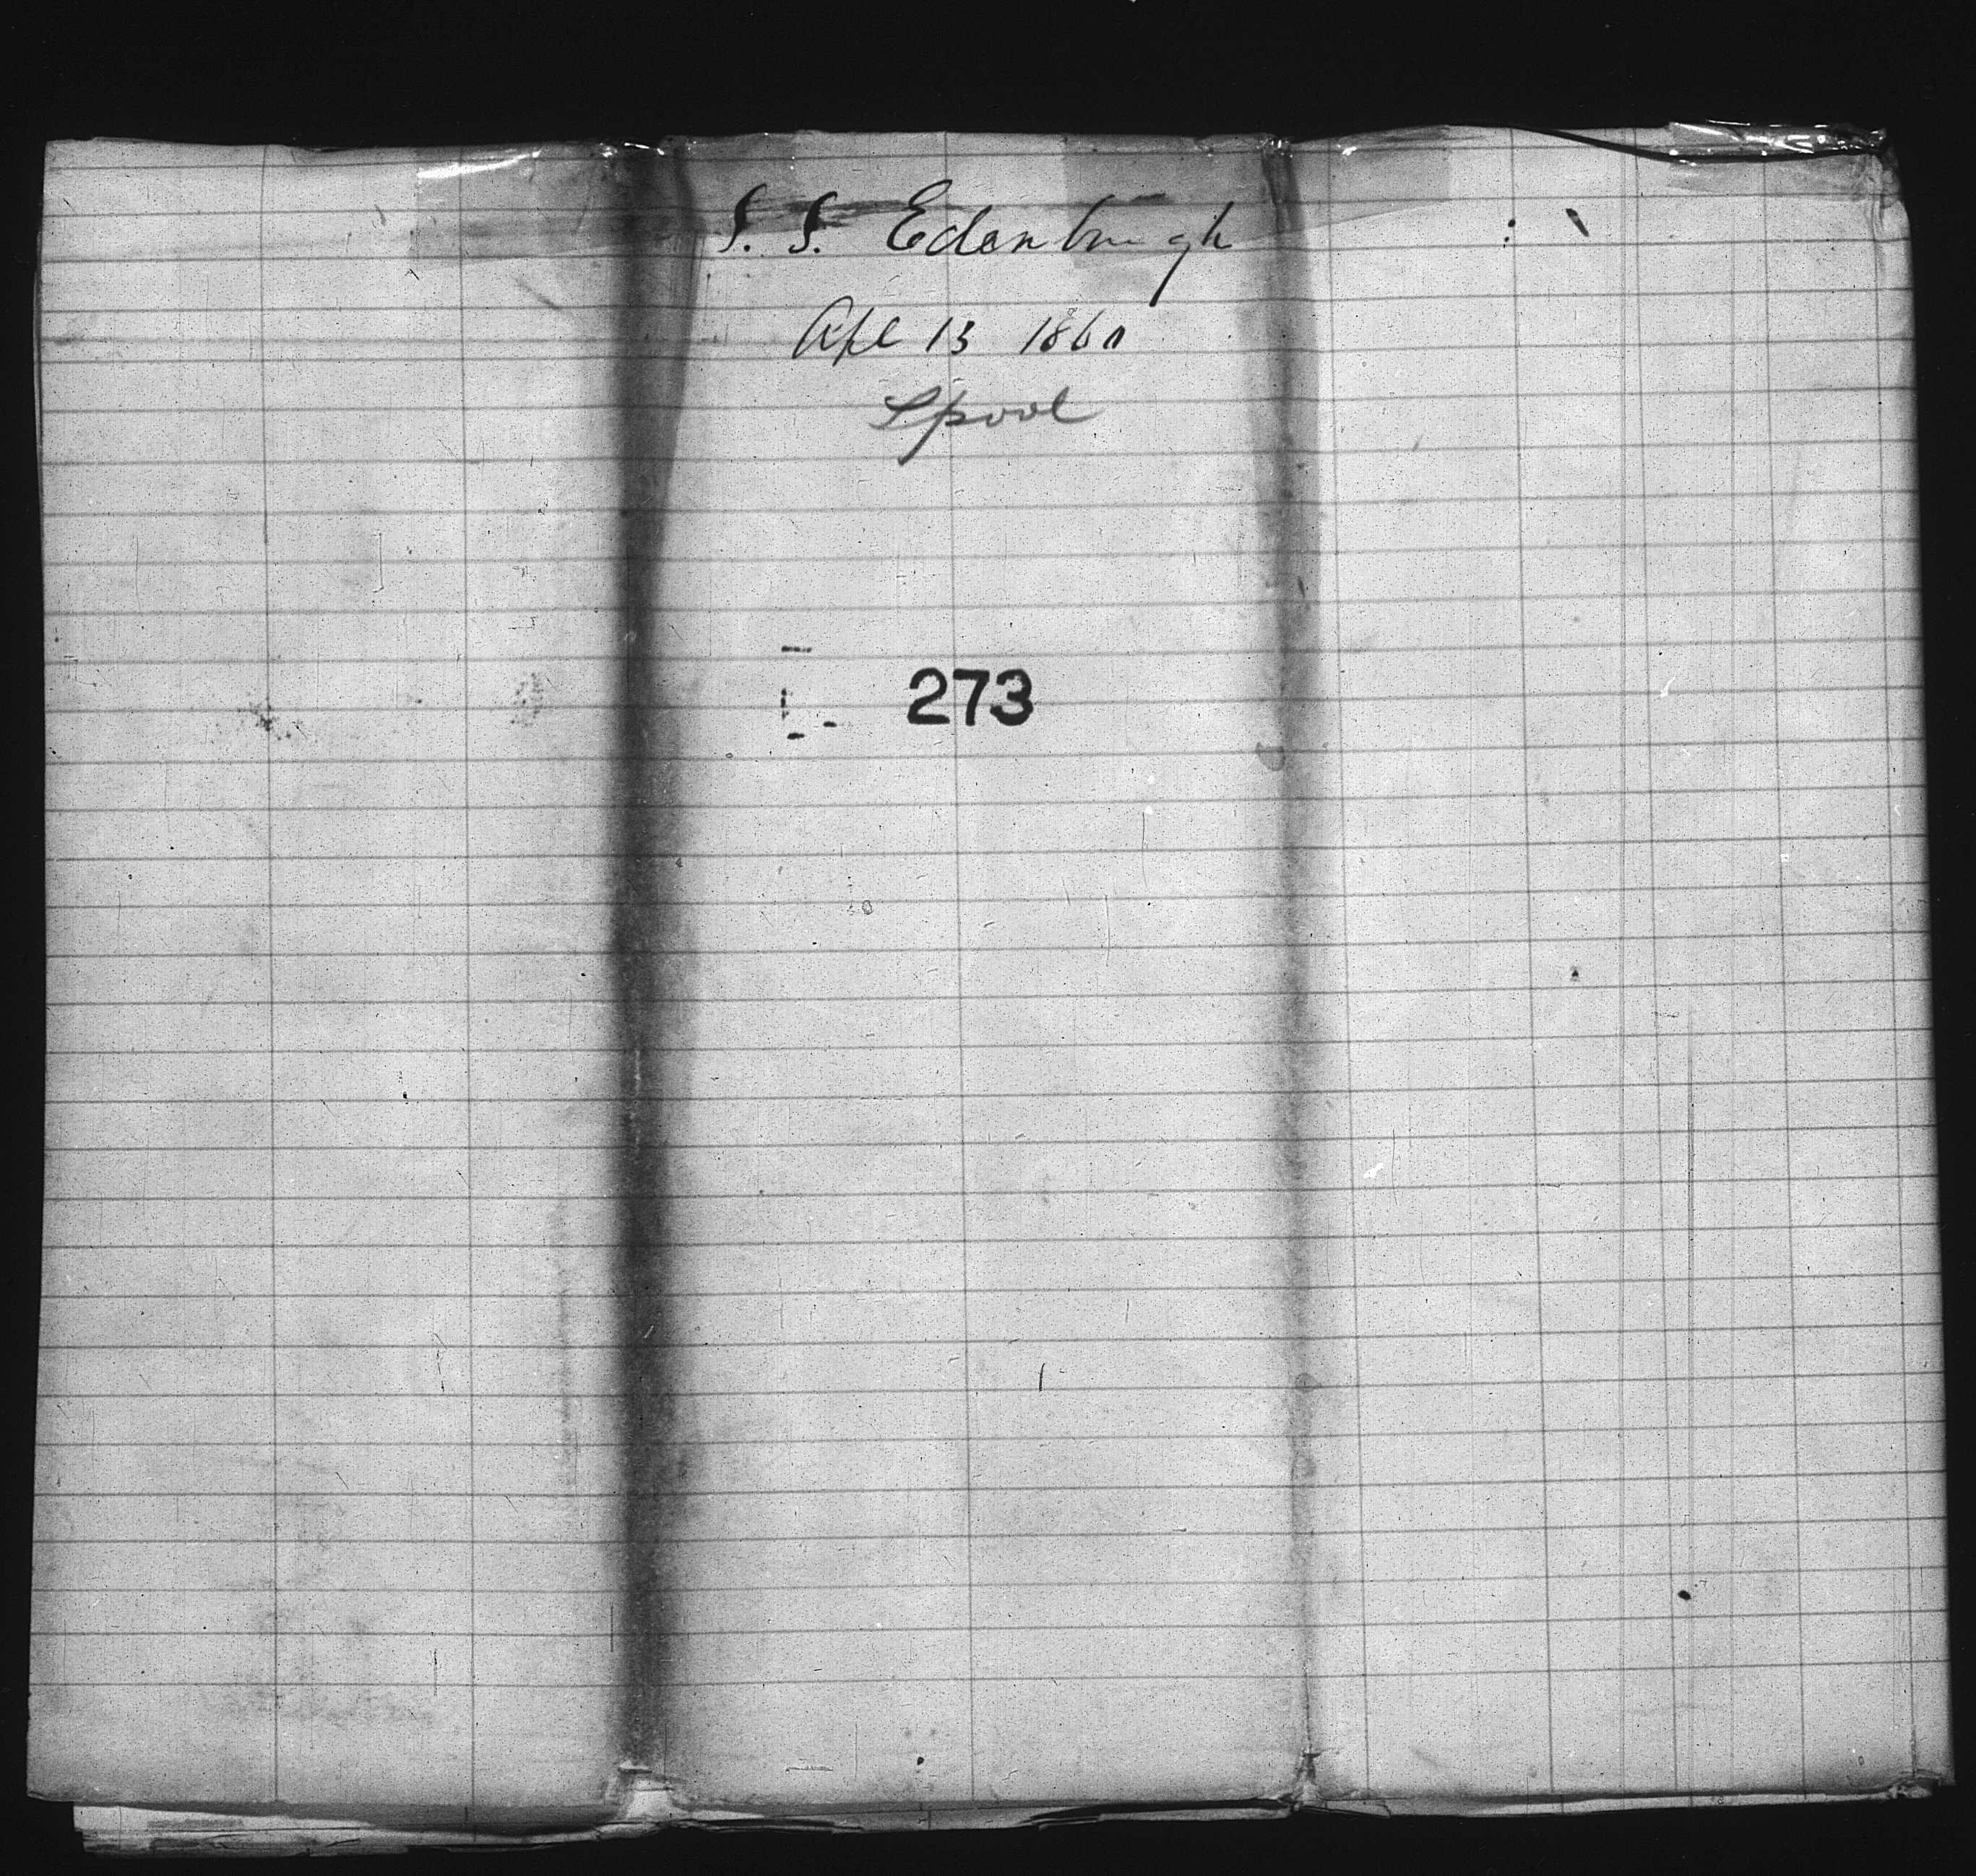 S. S. Edenburgh
Apl 13 1860
Lpool
273